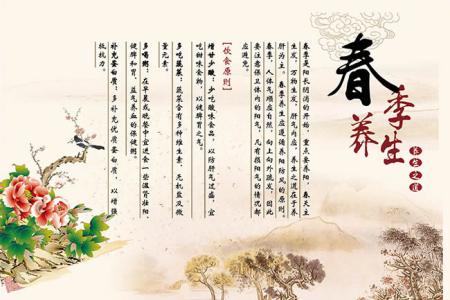 春季养生
春季是阳长阴消的开始，重点要养阳，春天主
生发，万物生发，肝气内应，养生之道在于养
肝为主。春季养生应遵循养阳防风的原则。
春季，人体气顺应自然，向上向外疏发，因此
要注意保卫体内的阳气，凡有损阳气的情况都
应避免。
【饮食原则】
增甘少酸：少吃酸味食品，以防肝气过盛，宜
吃甜味食物，以健脾胃之气。
多吃蔬菜：蔬菜含有多种维生素、无机盐及微
量元素。
多喝粥：在早晨或晚餐中宜进食一些温肾壮阳、
健脾和胃、益气养血的保健粥。
补充蛋白质：多补充优质蛋白质，以增强
抵抗力。